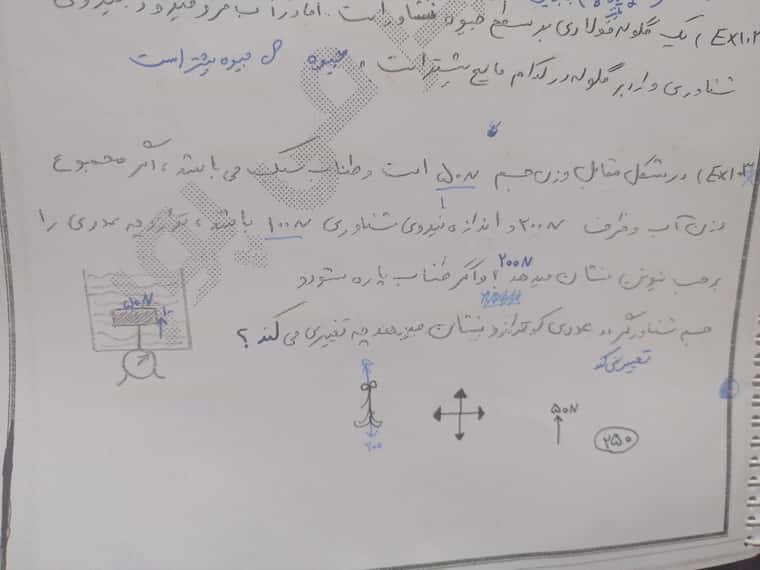 Ex۱۰۲) یک گلوله فولادی بر سطح جیوه شناور است. اما در آب فرو میرود. نیروی
شناوری وارد بر گلوله در کدام مایع بیشتر است. جیوه
م جیوه بیشتر است
Ex۱۰۳) در شکل مقابل وزن جسم ۵۰N است و طناب سبک می باشد، اگر مجموع
وزن آب و ظرف ۲۰۰N و اندازه نیروی شناوری ۱۰۰N باشد، ترازو چه عددی را
برحسب نیوتن نشان میدهد؟ و اگر طناب پاره شود و
۲۰۰N
جسم شناور گردد عددی که ترازو نشان میدهد چه تغییری می کند؟
تغییر نمی کند
۵۰N
۱۰۰
۲۰۰
۵۰N
۲۵۰